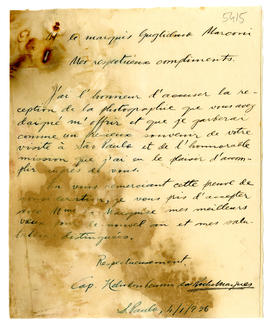 5415
M le marquis Guglielmo Marconi
Mes respectueux compliments.
J'ai l'honneur d'accuser la ré-
ception de la photographie que vous avez
daigné m'offrir et que je garderai
comme un précieux souvenir de votre
visite à São Paulo et de l'honorable
mission que j'ai eu le plaisir d'accom-
plir auprès de vous.
En vous remerciant cette preuve de
je vous prie d'accepter
avec Mme la Marquise mes meilleurs
vœux nouvel an et mes salu-
tations distinguées.
Respectueusement
Cap. da Rocha Marques
S. Paulo, 4/1/936